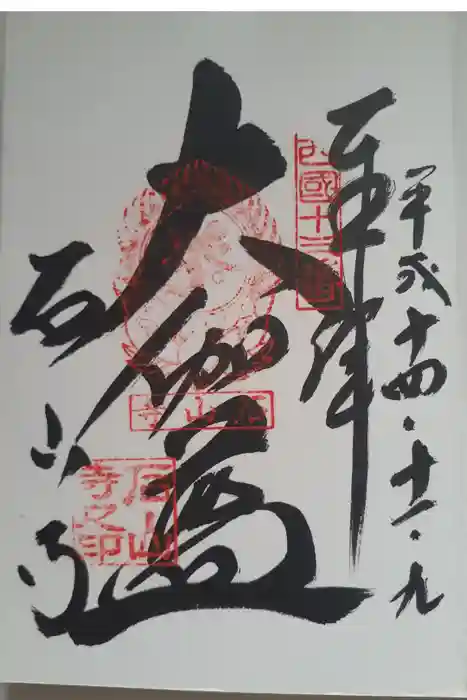 平成十四・十二・九
奉拝
西國十三番
大伽藍
石山寺
石山寺
石山寺之印